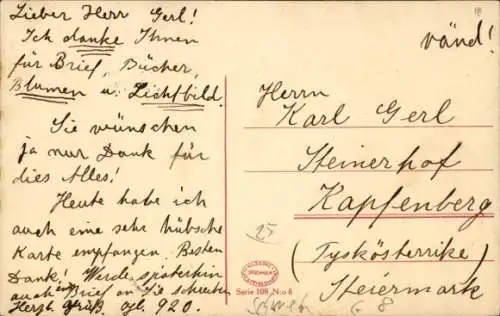 Lieber Herr Gerl!
Ich danke Ihnen
für Brief, Bücher,
Blumen u. Lichtbild.
Sie wünschen
ja nur Dank für
dies Alles!
Heute habe ich
auch eine sehr hübsche
Karte empfangen. Besten
Dank! Werde späterhin
auch Brief an Sie schreiben
Herzl. Gruß 920.
vänd!
Herrn
Karl Gerl
Steinerhof
Kapfenberg
(Tyskösterrike)
Steiermark
25
Serie 108 N:o 8
8